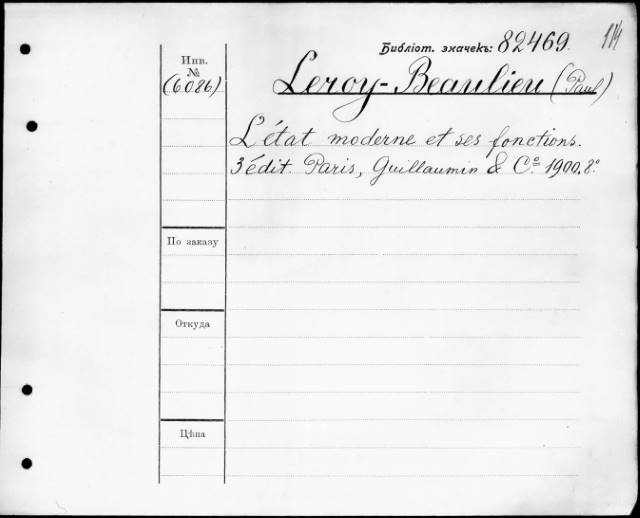 Библіот. значекъ: 82469. 114
Инв.
№
(6086)
Leroy-Beaulieu (Paul)
L'état moderne et ses fonctions.
3 édit. Paris, Guillaumin & Cº 1900. 8.º
По заказу
Откуда
Цѣна